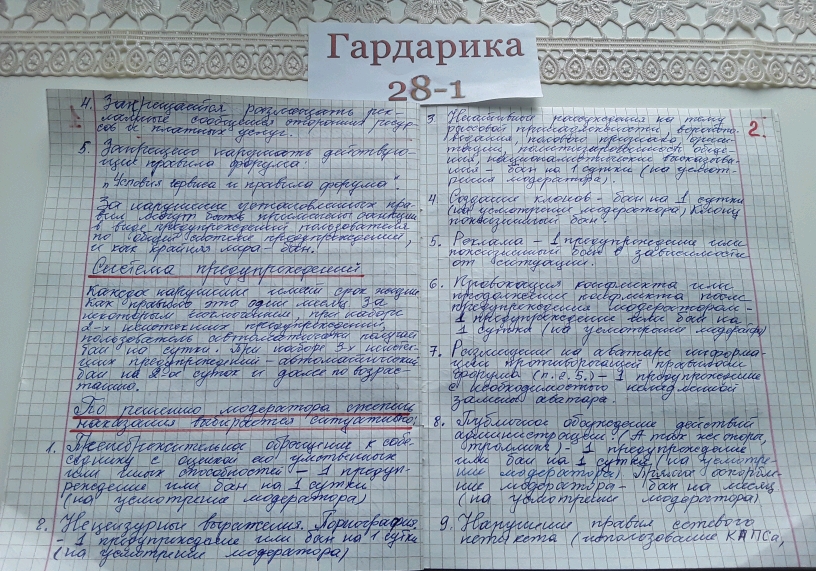 Гардарика
28-1
1.
4. Запрещается размещать рек-
ламные сообщения сторонних ресур-
сов и платных услуг.
5. Запрещено нарушать действую-
щие правила форума:
"Условия сервиса и правила форума".
За нарушение установленных пра-
вил могут быть применены санкции
в виде предупреждений пользователя
по общей системе предупреждений,
и как крайняя мера - бан.
Система предупреждений
Каждое нарушение имеет срок жизни
как правило это один месяц. За
некоторым исключением, при наборе
2-х неистекших предупреждений,
пользователь автоматически получает
бан на сутки. При наборе 3-х неистек-
ших предупреждений - автоматический
бан на 2-е суток и далее по возрас-
танию.
По решению модератора степень
наказания выбирается ситуативно:
1. Пренебрежительное обращение к собе-
седнику с оценкой его умственных
или иных способностей - 1 преду-
преждение или бан на 1 сутки
(на усмотрение модератора)
2. Нецензурные выражения. Порнография.
- 1 предупреждение или бан на 1 сутки
(на усмотрение модератора)
2.
3. Негативные рассуждения на тему
рассовой принадлежности, вероиспо-
ведания, полового признака, ориен-
тации,
ния, националистические высказыва-
ния - бан на 1 сутки (на усмот-
рения модератора).
4. Создание клонов - бан на 1 сутки
(на усмотрение модератора) Клону
пожизненный бан.
5. Реклама - 1 предупреждение или
пожизненный бан в зависимости
от ситуации.
6. Провокация конфликта или
продолжение конфликта после
предупреждения модератором -
1 предупреждение или бан на
1 сутки (на усмотрение модератора)
7. Размещение на аватаре информа-
ции противоречащей правилам
форума (п.с.5.) - 1 предупреждение
с необходимостью немедленной
замены аватара.
8. Публичное обсуждение действий
администрации. (А также споры,
троллинг) - 1 предупреждение
или бан на 1 сутки (на усмотре-
ние модератора) Прямое оскорбле-
ние модератора - бан на месяц
(на усмотрение модератора)
9. Нарушение правил сетевого
нетикета (использование КАПСа,